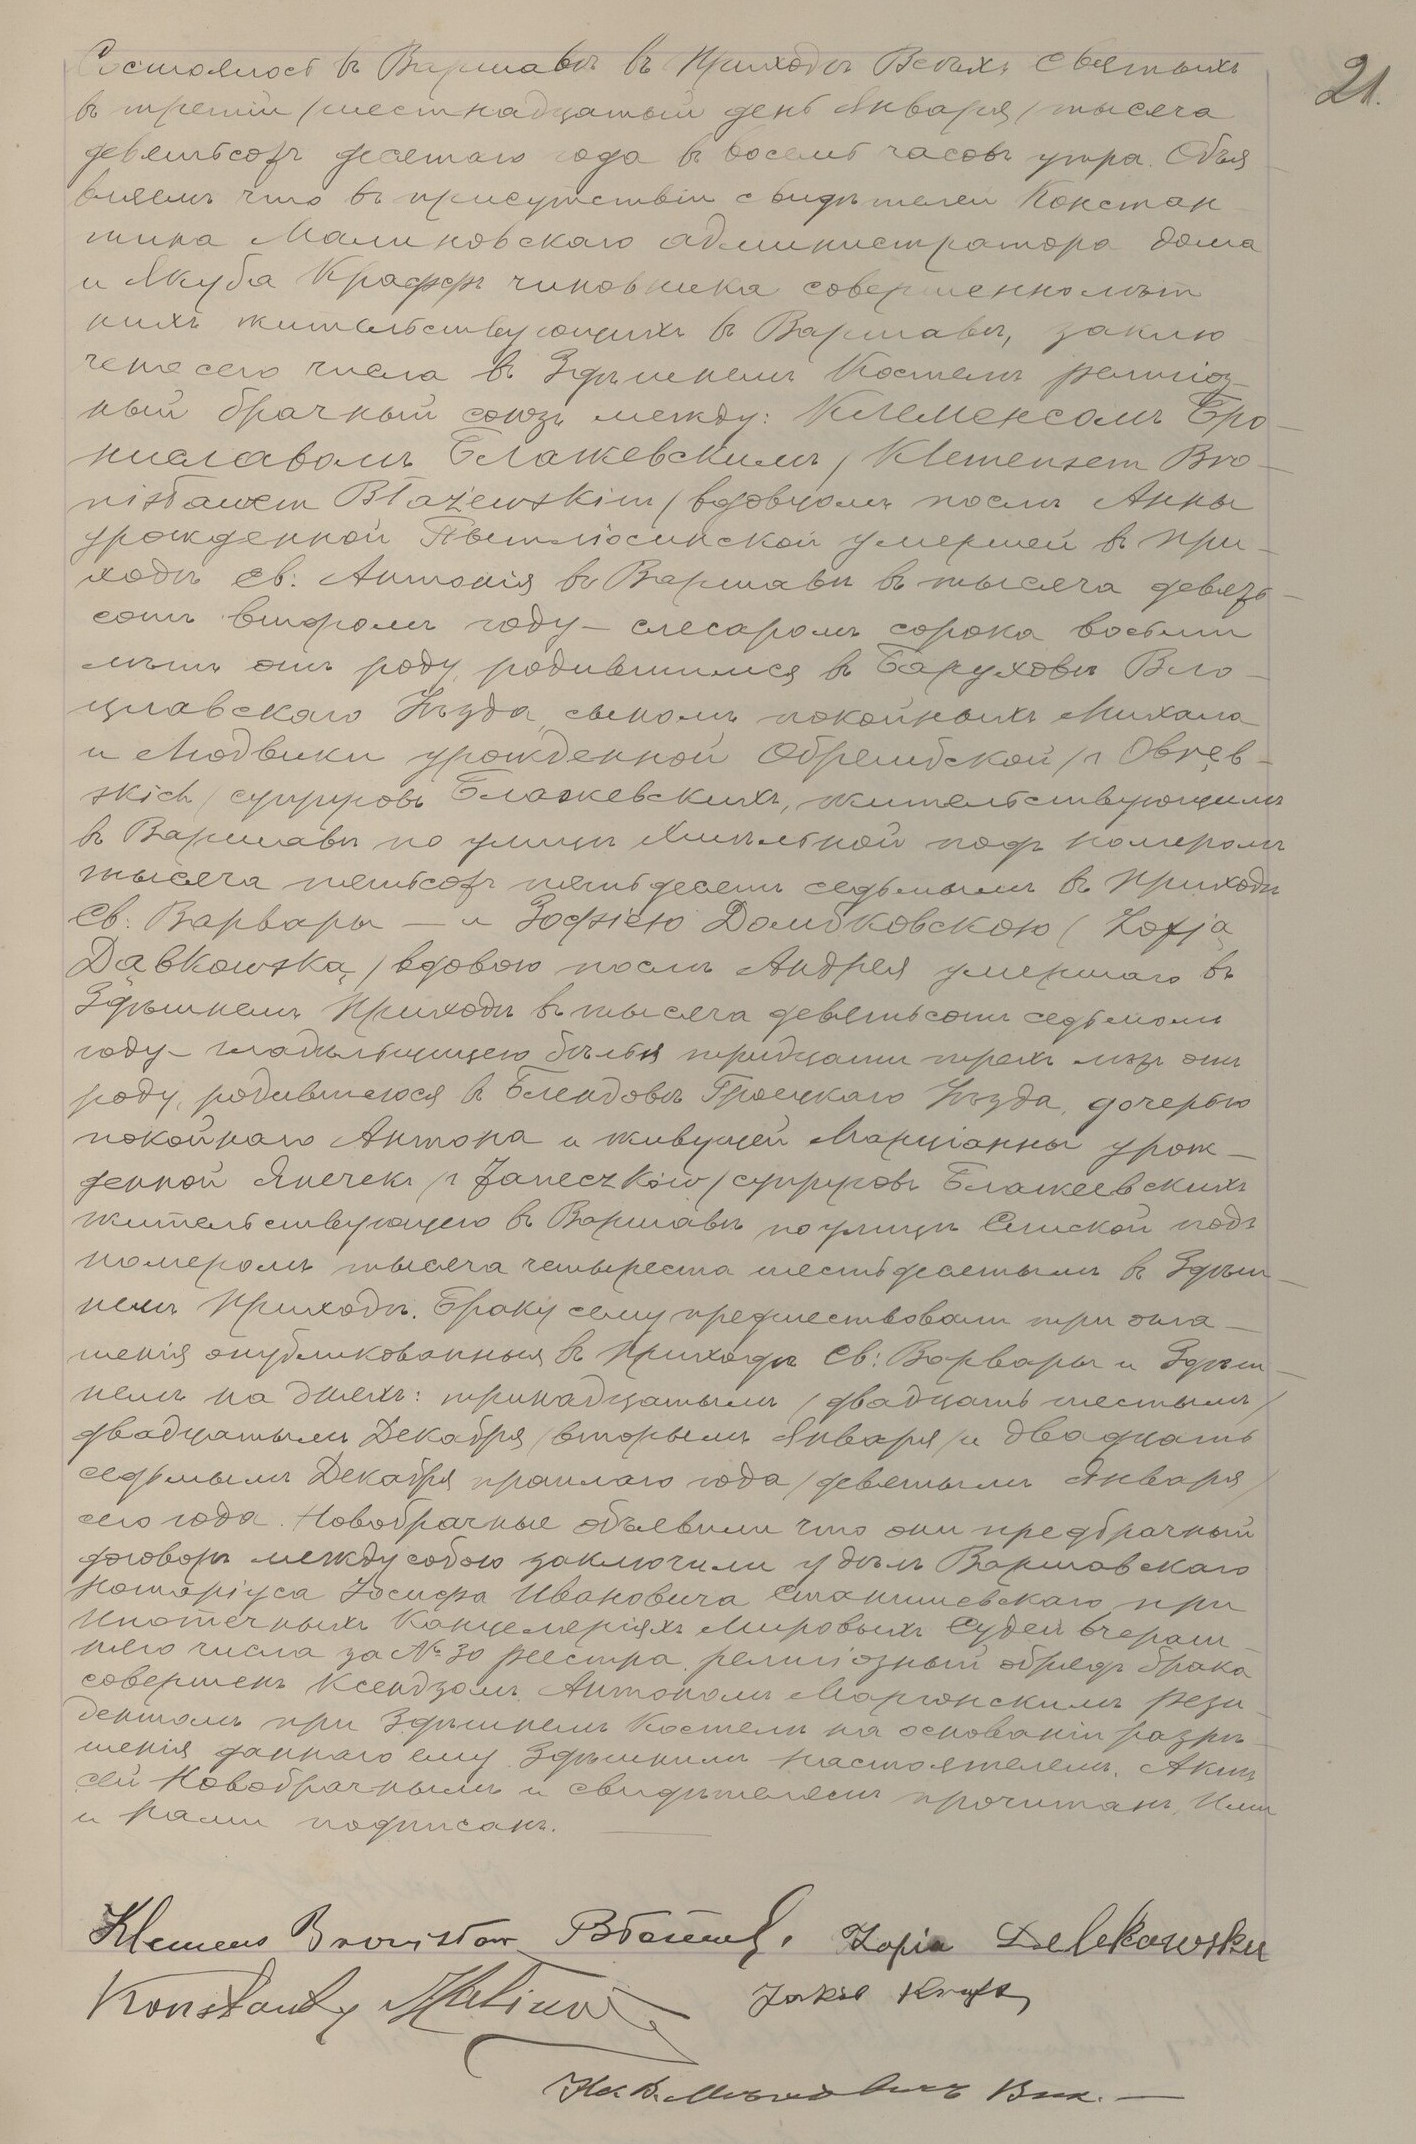 21.
Состоялось въ Варшавѣ въ Приходѣ Всѣхъ Святыхъ
въ третій /шестнадцатый день Января/ тысяча
девятьсотъ десятаго года въ восемь часовъ утра. Объя
вляемъ что въ присутствіи свидѣтелей Констан
тина Малиновскаго администратора дома
и Якуба Крафтъ чиновника совершеннолѣт
нихъ жительствующихъ въ Варшавѣ, заклю
ченъ сего числа въ Здѣшнемъ Костелѣ религіоз-
ный брачный союзъ между: Клеменсомъ Бро-
ниславомъ Блажевскимъ /Klemensem Bro-
nisławem Błażewskim/ вдовцомъ послѣ Анны
урожденной умершей въ При-
ходѣ Св: Антонія въ Варшавѣ въ тысяча девять-
сотъ второмъ году — слесаромъ сорока восьми
лѣтъ отъ роду, родившимся въ Баруховѣ Вло-
цлавскаго Уѣзда, сыномъ покойныхъ Михала
и Людвики урожденной Обрембской /z Obręb-
skich/ супруговъ Блажевскихъ, жительствующимъ
въ Варшавѣ по улицѣ Хмѣльной подъ номеромъ
тысяча пятьсотъ пятьдесятъ седьмымъ въ Приходѣ
Св: Варвары — и Зофіею Домбковскою (Zofją
Dąbkowską/ вдовою послѣ Андрея умершаго въ
Здѣшнемъ Приходѣ въ тысяча девятьсотъ седьмомъ
году — гладильщицею бѣлья тридцати трехъ лѣтъ отъ
роду, родившеюся въ Блендовѣ Гроецкаго Уѣзда, дочерью
покойнаго Антона и живущей Марціанны урож-
денной Янечекъ /z Janeczków/ супруговъ Блажеевскихъ
жительствующею въ Варшавѣ по улицѣ Слиской подъ
номеромъ тысяча четыреста шестьдесятымъ въ Здѣш-
немъ Приходѣ. Браку сему предшествовали три огла-
шенія опубликованныя въ Приходѣ Св: Варвары и Здѣш-
немъ на дняхъ: тринадцатымъ /двадцать шестымъ/
двадцатымъ Декабря /вторымъ Января/ и двадцать
седьмымъ Декабря прошлаго года /девятымъ Января/
сего года. Новобрачные объявили что они предбрачный
договоръ между собою заключили у дѣлъ Варшавскаго
Нотаріуса Іосифа Ивановича при
Ипотечныхъ Канцеляріяхъ Мировыхъ Судей вчераш-
няго числа за № 30 реестра. религіозный обрядъ брака
совершенъ Ксендзомъ Антономъ рези-
дентомъ при Здѣшнемъ Костелѣ на основаніи разрѣ-
шенія даннаго ему Здѣшнимъ Настоятелемъ. Актъ
сей Новобрачнымъ и свидѣтелямъ прочитанъ, Ими
и Нами подписанъ.
Klemens Bronisław Zofia
Konstanty Jakób Kraft